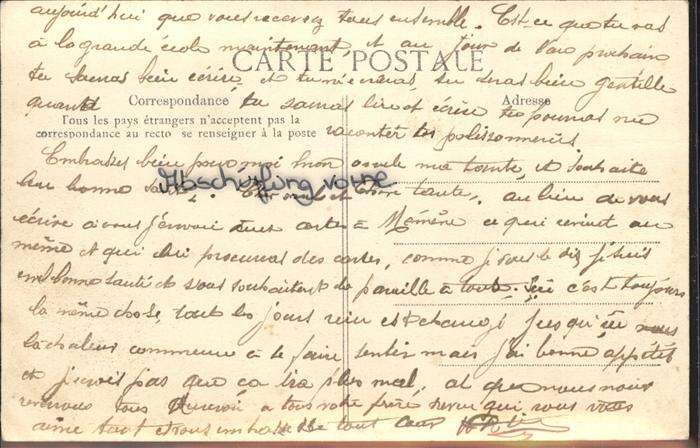 aujourd'hui que vous recevrez tous ensemble. Est-ce que tu vas
à la grande école maintenant, et au jour de l'an prochain
CARTE POSTALE
tu sauras bien écrire, et tu m'enverras, tu seras bien gentille
quand tu sauras lire et écrire tu pourras me
Correspondance
Adresse
Tous les pays étrangers n'acceptent pas la
correspondance au recto se renseigner à la poste
raconter tes polissonneries.
Embrasses bien pour moi mon oncle ma tante, et souhaite
leur bonne tante. au lieu de vous
Abschürfung vorne
écrire à vous j'envoie cartes à Mémère ce qui revient au
même et qui lui procurera des cartes, comme je vous le dis je suis
en bonne santé et vous souhaite la pareille à tous. Ici c'est toujours
la même chose, tous les jours rien est changé jusqu'ici
la chaleur commence à se faire sentir mais j'ai bonne appétit
et je crois pas que ça ira plus mal, nous nous
reverrons tous à tous votre frère neveu qui vous
aime tout et vous embrasse de tout cœur